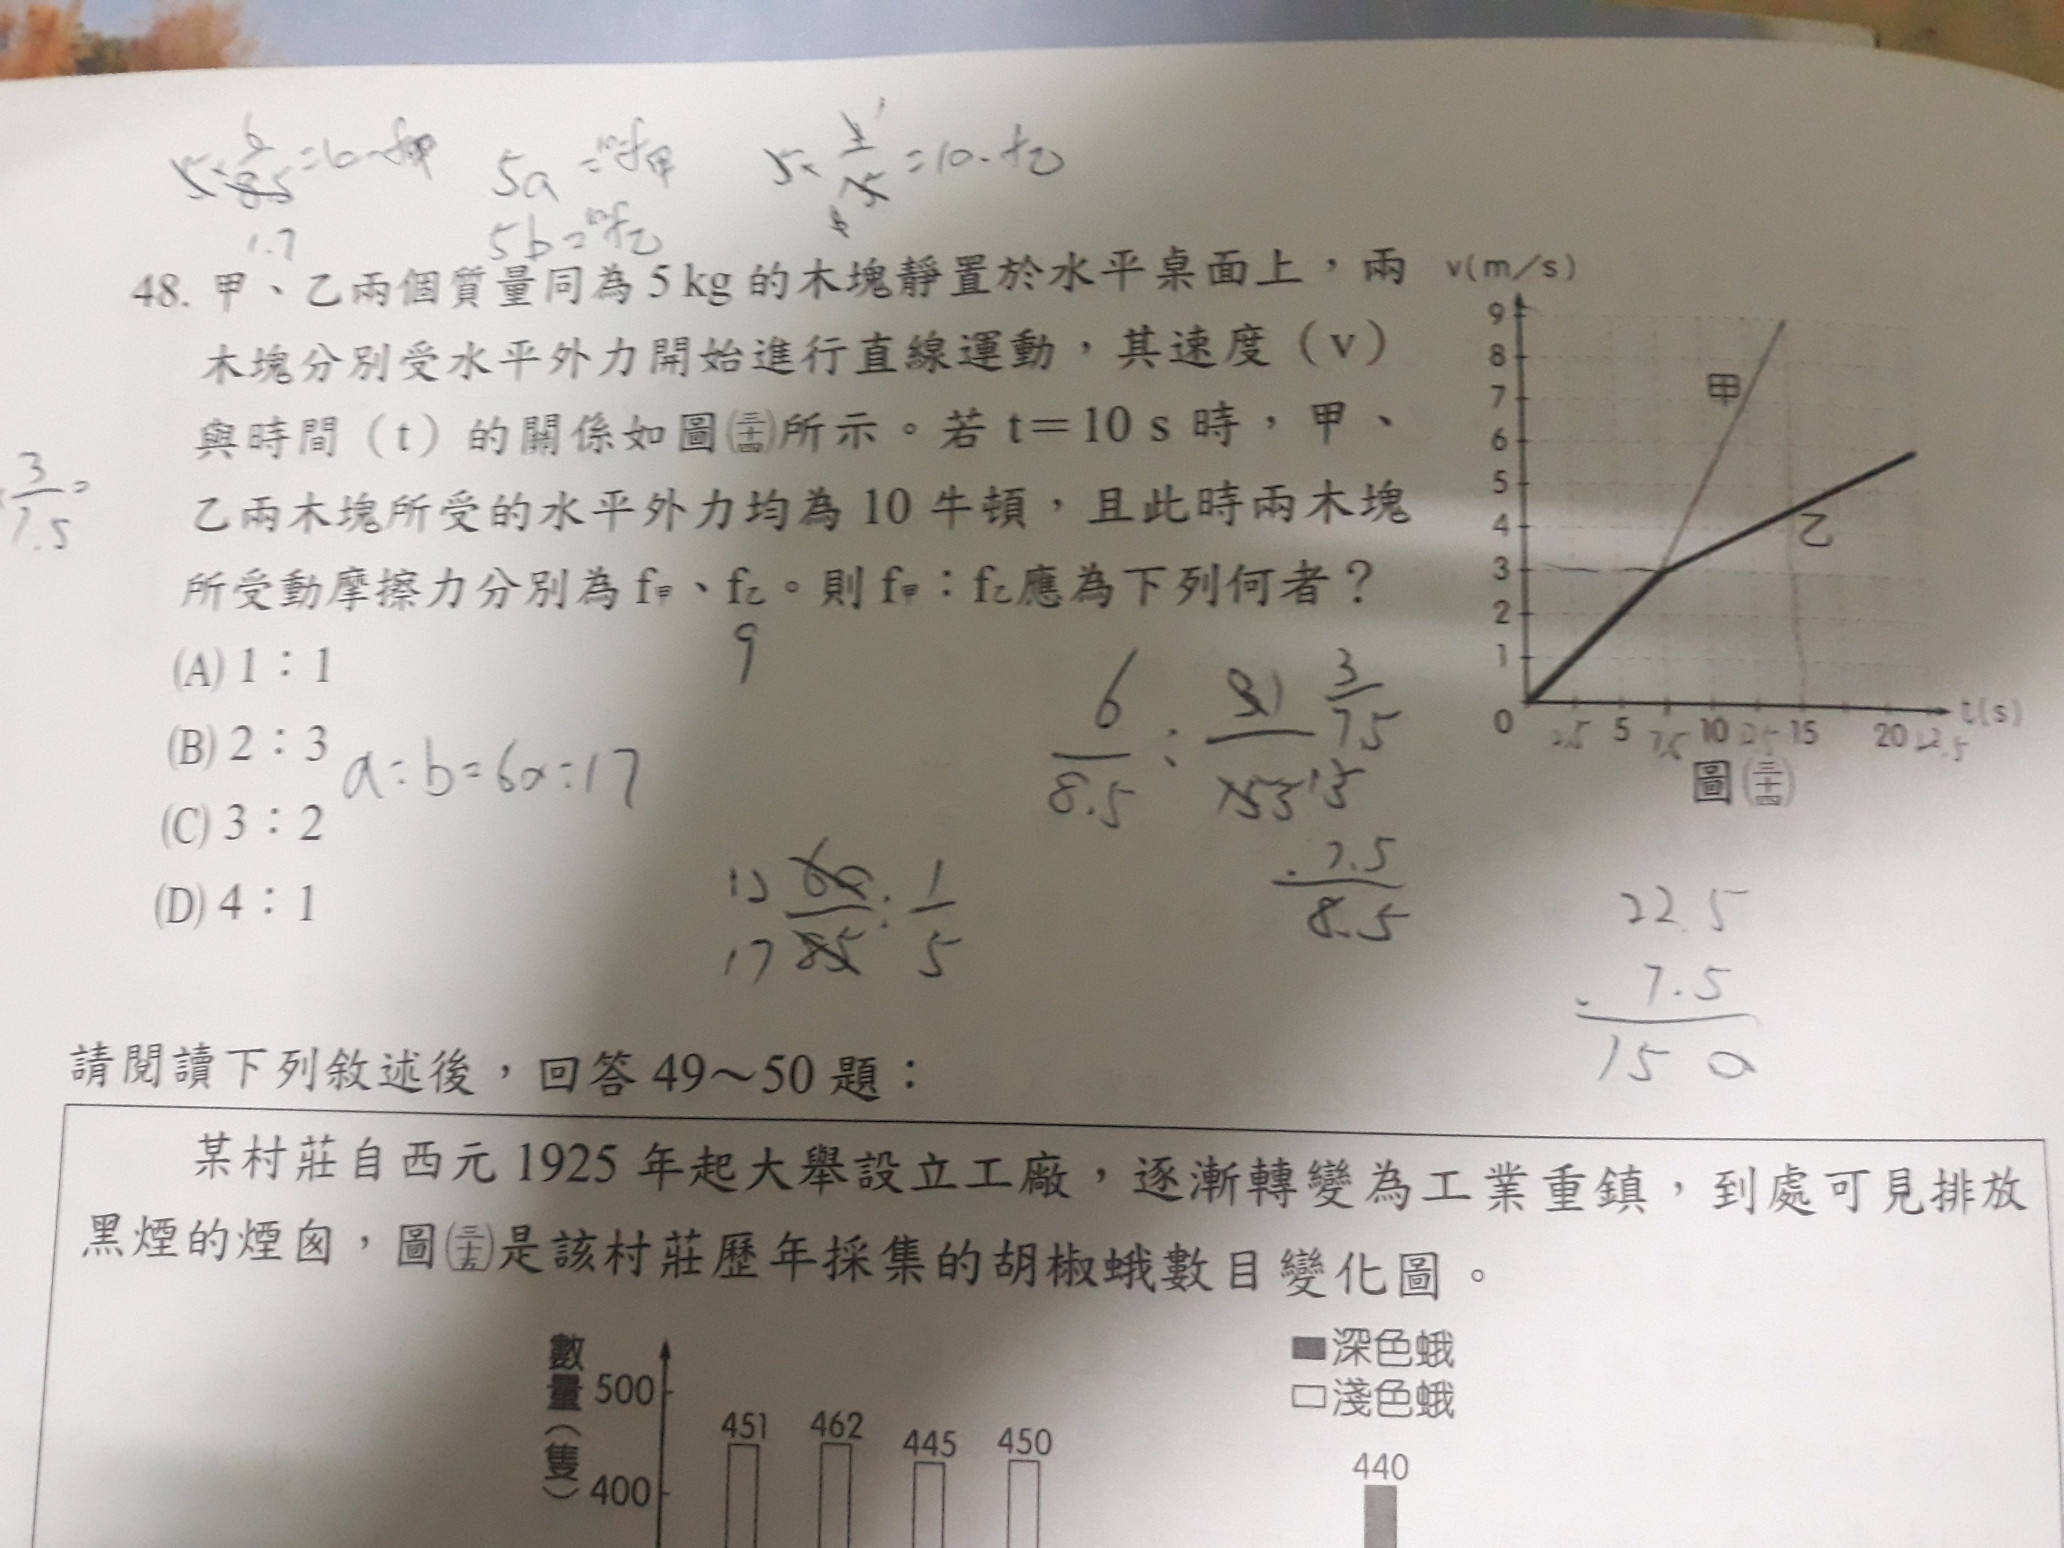 5×6/8.5=10-f甲 5a=10-f甲 5×1/15=10-f乙
1.7 5b=10-f乙
48. 甲、乙兩個質量同為 5 kg 的木塊靜置於水平桌面上，兩
木塊分別受水平外力開始進行直線運動，其速度（v）
與時間（t）的關係如圖(三十四)所示。若 t＝10 s 時，甲、
乙兩木塊所受的水平外力均為 10 牛頓，且此時兩木塊
所受動摩擦力分別為 f甲、f乙。則 f甲：f乙應為下列何者？
(A) 1：1
(B) 2：3
(C) 3：2
(D) 4：1
v(m/s)
9
8
7
6
5
4
3
2
1
0 2.5 5 7.5 10 12.5 15 20 22.5 t(s)
甲
乙
圖(三十四)
3/7.5=
9
a:b=60:17
6/8.5 :
3/75
7.5
8.5
12/17 60/85 : 1/5
22.5
-7.5
15 0
請閱讀下列敘述後，回答 49～50 題：
某村莊自西元 1925 年起大舉設立工廠，逐漸轉變為工業重鎮，到處可見排放
黑煙的煙囪，圖(三十五)是該村莊歷年採集的胡椒蛾數目變化圖。
數量(隻)
500
400
451 462 445 450 440
深色蛾
淺色蛾